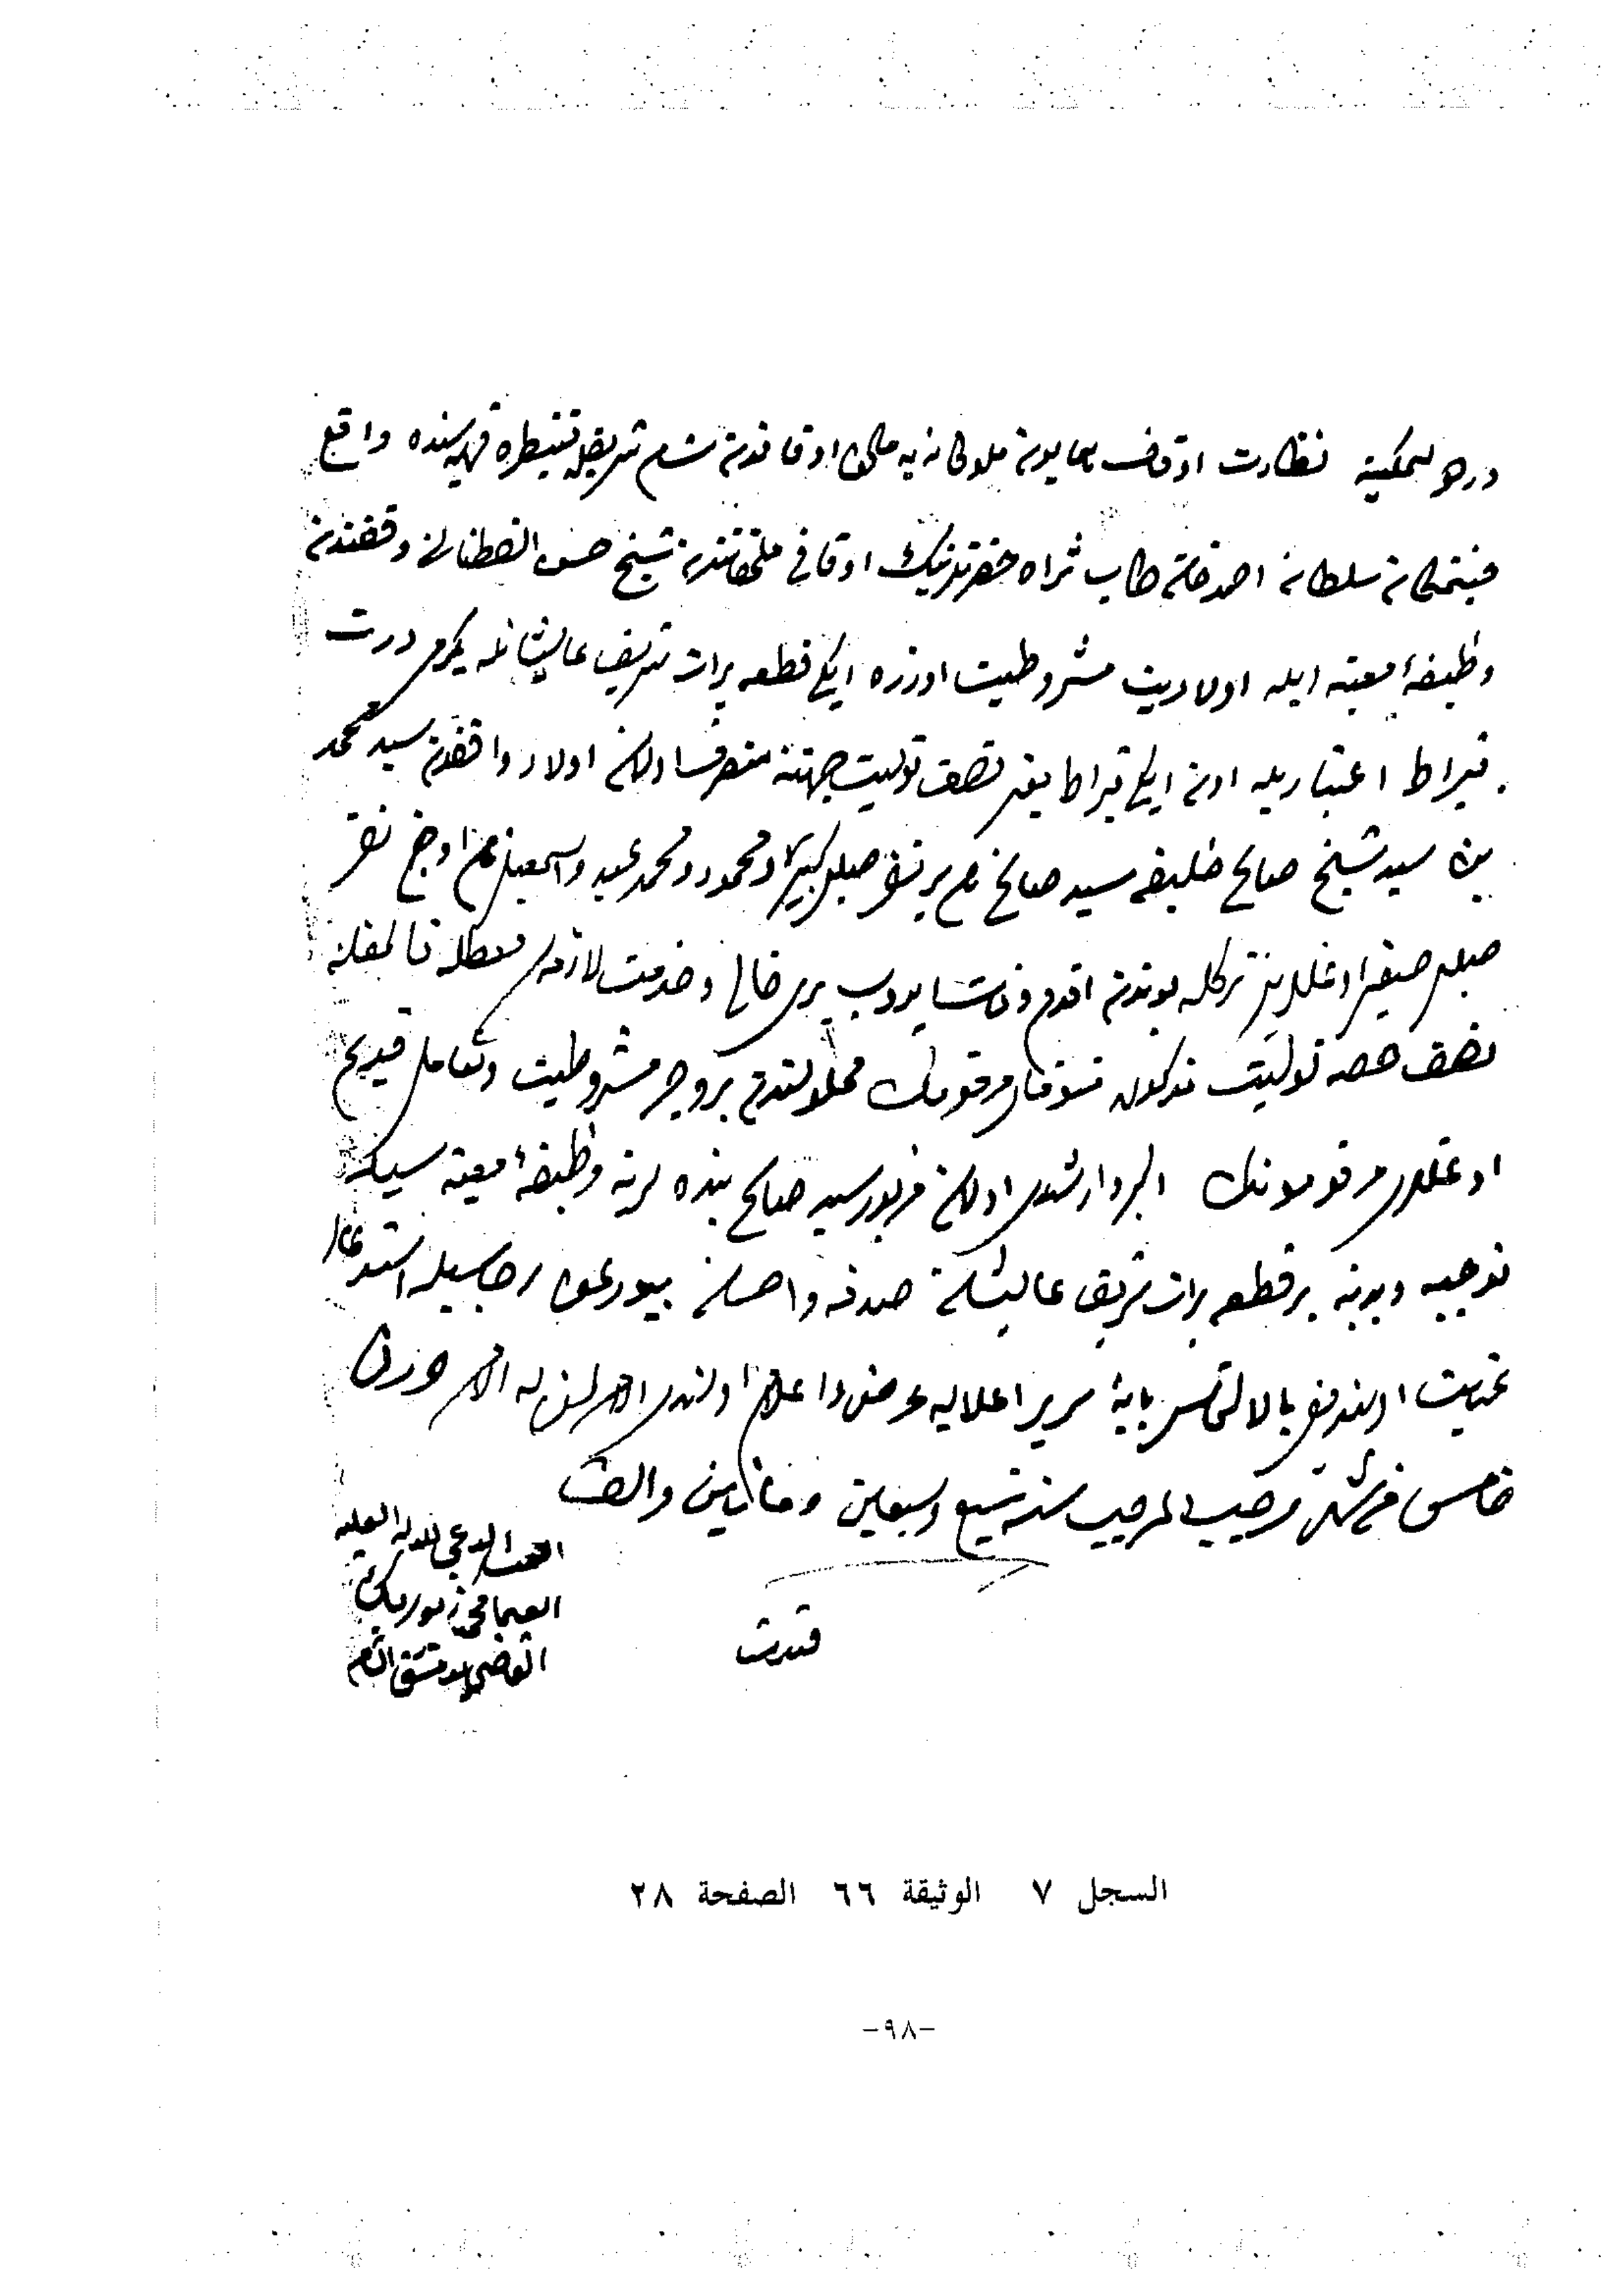 نظارت اوقاف همايون ملوكانه يه ملحق اوقافدن شام شريفده قنيطره قريه سنده واقع
جنتمكان سلطان احمد خان طاب ثراه حضرتلرينك اوقافى ملحقاتندن شيخ حسن القطنانى وقفندن
وظيفهٔ معينه ايله اولاديت مشروطيت اوزره ايكى قطعه برات شريف عاليشانله يكرمى درت
قيراط اعتباريله اون ايكى قيراط يعنى نصف توليت جهتنه متصرف اولان اولاد واقفدن سيد محمد
بن سيد شيخ صالح خليفه سيد صالح نام بر نفر صلبى كبير و محمود و محمد عيد و اسمعيل نام اوچ نفر
صلبى صغير اوغللرين تركله بوندن اقدم وفات ايدوب يرى خالى و خدمت لازمه سى معطله قالمغله
نصف حصه توليت مذكور متوفاى مرقومك محلولندن بر وجه مشروطيت و تعامل قديم
اوغللرى مرقومونك اكبر و ارشدى اولان مزبور سيد صالح بنده لرينه وظيفهٔ معينه سيله
توجيه ويدينه بر قطعه برات شريف عاليشان صدقه و احسان بيورلمق رجاسيله استدعاى
عنايت اولندوغى بالالتماس پايهٔ سرير اعلايه عرض و اعلام اولندى الامر لمن له الامر حرر فى
خامس من شهر رجب المرجب سنه تسع وسبعين ومائتين والف
العبد الداعى للدولة العليه
القاضى بدمشق الشام
قيدت
السجل ٧ الوثيقة ٦٦ الصفحة ٢٨
-٩٨-